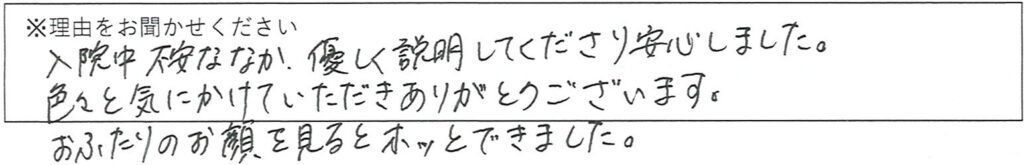 ※理由をお聞かせください
入院中 不安ななか、優しく説明してくださり安心しました。
色々と気にかけていただきありがとうございます。
おふたりのお顔を見るとホッとできました。